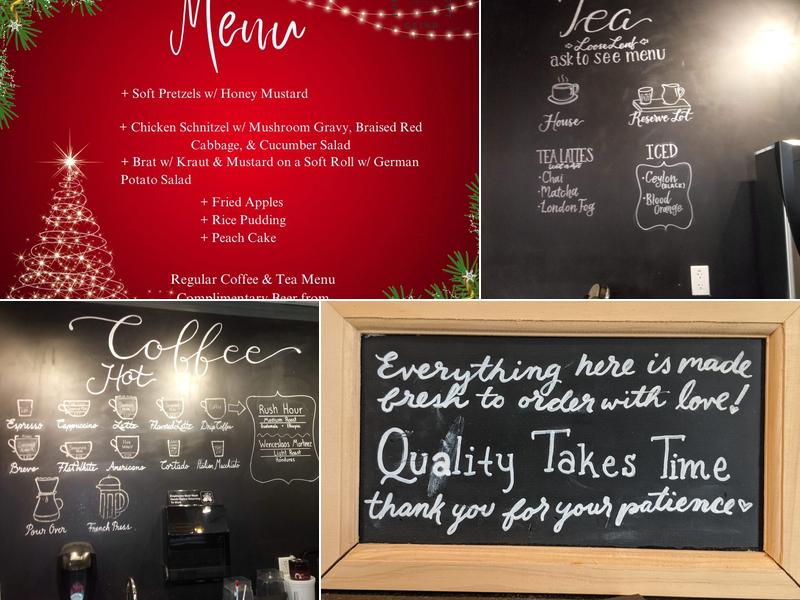 Menu
+ Soft Pretzels w/ Honey Mustard
+ Chicken Schnitzel w/ Mushroom Gravy, Braised Red
Cabbage, & Cucumber Salad
+ Brat w/ Kraut & Mustard on a Soft Roll w/ German
Potato Salad
+ Fried Apples
+ Rice Pudding
+ Peach Cake
Regular Coffee & Tea Menu
Complimentary Beer from
Tea
Loose Leaf
ask to see menu
House
Reserve Lot
TEA LATTES
• Chai
• Matcha
• London Fog
ICED
• Ceylon
(BLACK)
• Blood
Orange
Coffee
Hot
Espresso
Cappuccino
Latte
Flavored Latte
Drip Coffee
Breve
Flat White
Americano
Cortado
Italian Macchiato
Pour Over
French Press
Rush Hour
Medium Roast
Guatemala - Ethiopia
Wenceslaos Martinez
Light Roast
Honduras
Everything here is made
fresh to order with love!
Quality Takes Time
thank you for your patience